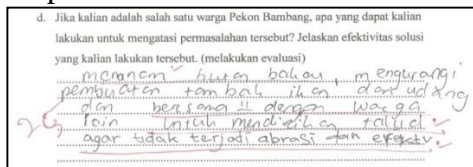 d. Jika kalian adalah salah satu warga Pekon Bambang, apa yang dapat kalian
lakukan untuk mengatasi permasalahan tersebut? Jelaskan efektivitas solusi
yang kalian lakukan tersebut. (melakukan evaluasi)
menanam hutan bakau, mengurangi
pembuatan tambak ikan dan udang
dan bersama" dengan warga
lain untuk mendirikan tallud
agar tidak terjadi abrasi dan efektiv